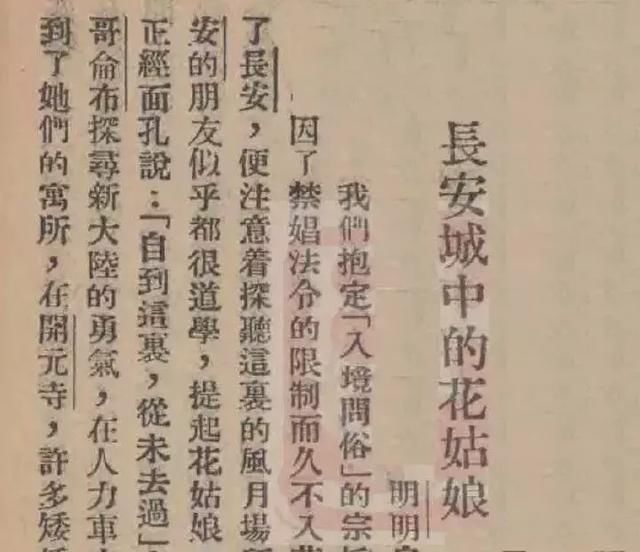 長安城中的花姑娘
明明
我們抱定「入境問俗」的宗
因了禁娼法令的限制而久不入
了長安，便注意着探聽這裏的風月場
安的朋友似乎都很道學，提起花姑娘
正經面孔說：「自到這裏，從未去過」
哥倫布探尋新大陸的勇氣，在人力車
到了她們的寓所，在開元寺，許多矮